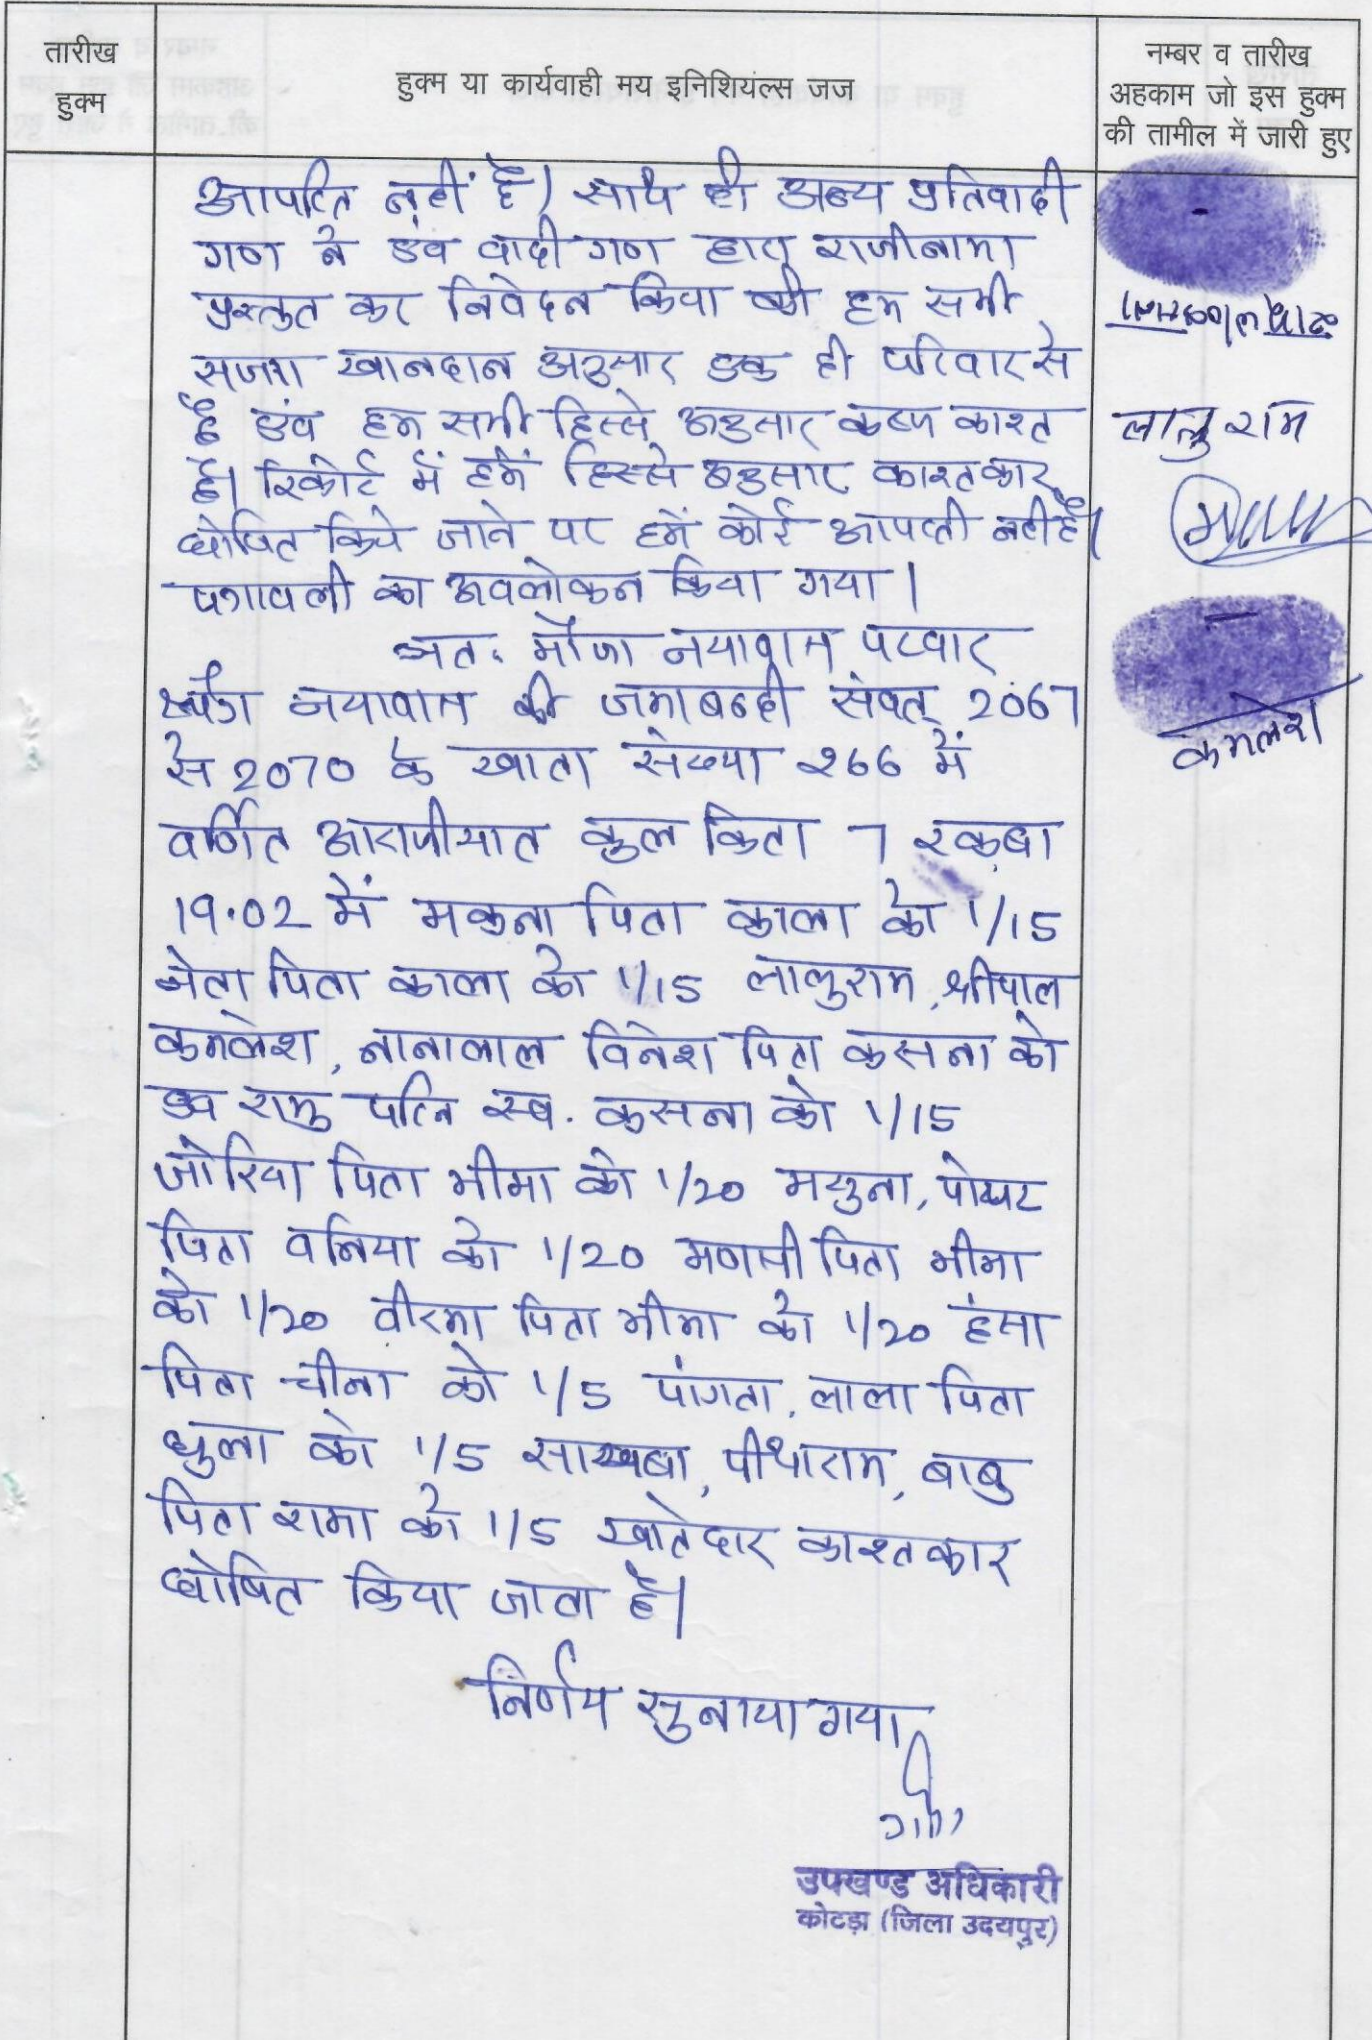 तारीख
हुक्म
हुक्म या कार्यवाही मय इनिशियल्स जज
नम्बर व तारीख
अहकाम जो इस हुक्म
की तामील में जारी हुए
आपत्ति नहीं है। साथ ही अन्य प्रतिवादी
गण ने एंव वादी गण द्वारा राजीनामा
प्रस्तुत कर निवेदन किया की हम सभी
सजरा खानदान अनुसार एक ही परिवार से
है एंव हम सभी हिस्से अनुसार कब्ज काश्त
है। रिकोर्ट में हमें हिस्से अनुसार काश्तकार
घोषित किये जाने पर हमें कोई आपत्ती नही है।
पत्रावली का अवलोकन किया गया।
अतः मौजा नयावास पटवार
नयावास की जमाबन्दी संवत् 2067
से 2070 के खाता संख्या 266 में
वर्णित आराजीयात कुल किता 7 रकबा
19.02 में मकना पिता काला को 1/15
नेता पिता काला को 1/15 लालुराम, श्रीपाल
कमलेश, नानालाल विनेश पिता कसना को
एव रामु पत्नि स्व. कसना को 1/15
जोरिया पिता भीमा को 1/20 मसुना, पोखट
पिता वनिया को 1/20 मणसी पिता भीमा
को 1/20 वीरमा पिता भीमा को 1/20 हंसा
पिता चीना को 1/5 पांगता, लाला पिता
धुला को 1/5 पीथाराम, बाबु
पिता रामा को 1/5 खातेदार काश्तकार
घोषित किया जाता है।
निर्णय सुनाया गया
उपखण्ड अधिकारी
कोटड़ा (जिला उदयपुर)
लालु राम
कमलेश